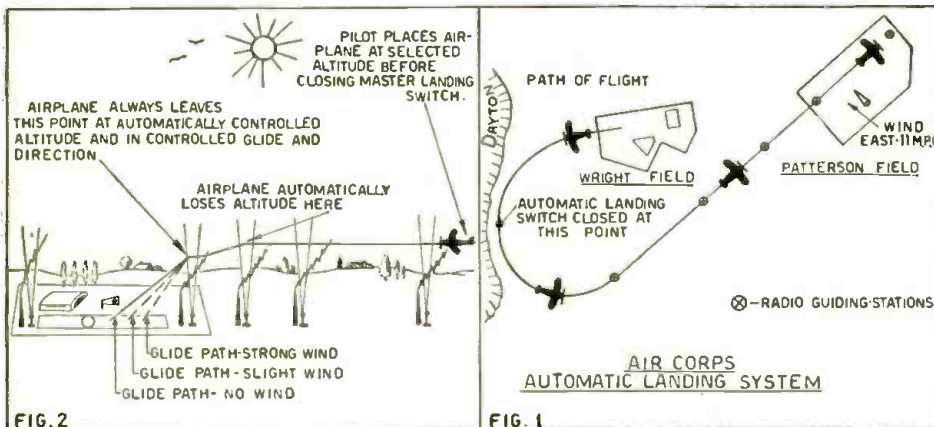 PILOT PLACES AIR-
PLANE AT SELECTED
ALTITUDE BEFORE
CLOSING MASTER LANDING
SWITCH.
AIRPLANE ALWAYS LEAVES
THIS POINT AT AUTOMATICALLY CONTROLLED
ALTITUDE AND IN CONTROLLED GLIDE AND
DIRECTION
AIRPLANE AUTOMATICALLY
LOSES ALTITUDE HERE
GLIDE PATH-STRONG WIND
GLIDE PATH-SLIGHT WIND
GLIDE PATH-NO WIND
FIG. 2
PATH OF FLIGHT
DAYTON
WRIGHT FIELD
WIND
EAST-11 M.P.
PATTERSON FIELD
AUTOMATIC LANDING
SWITCH CLOSED AT
THIS POINT
-RADIO GUIDING-STATIONS
AIR CORPS
AUTOMATIC LANDING SYSTEM
FIG. 1